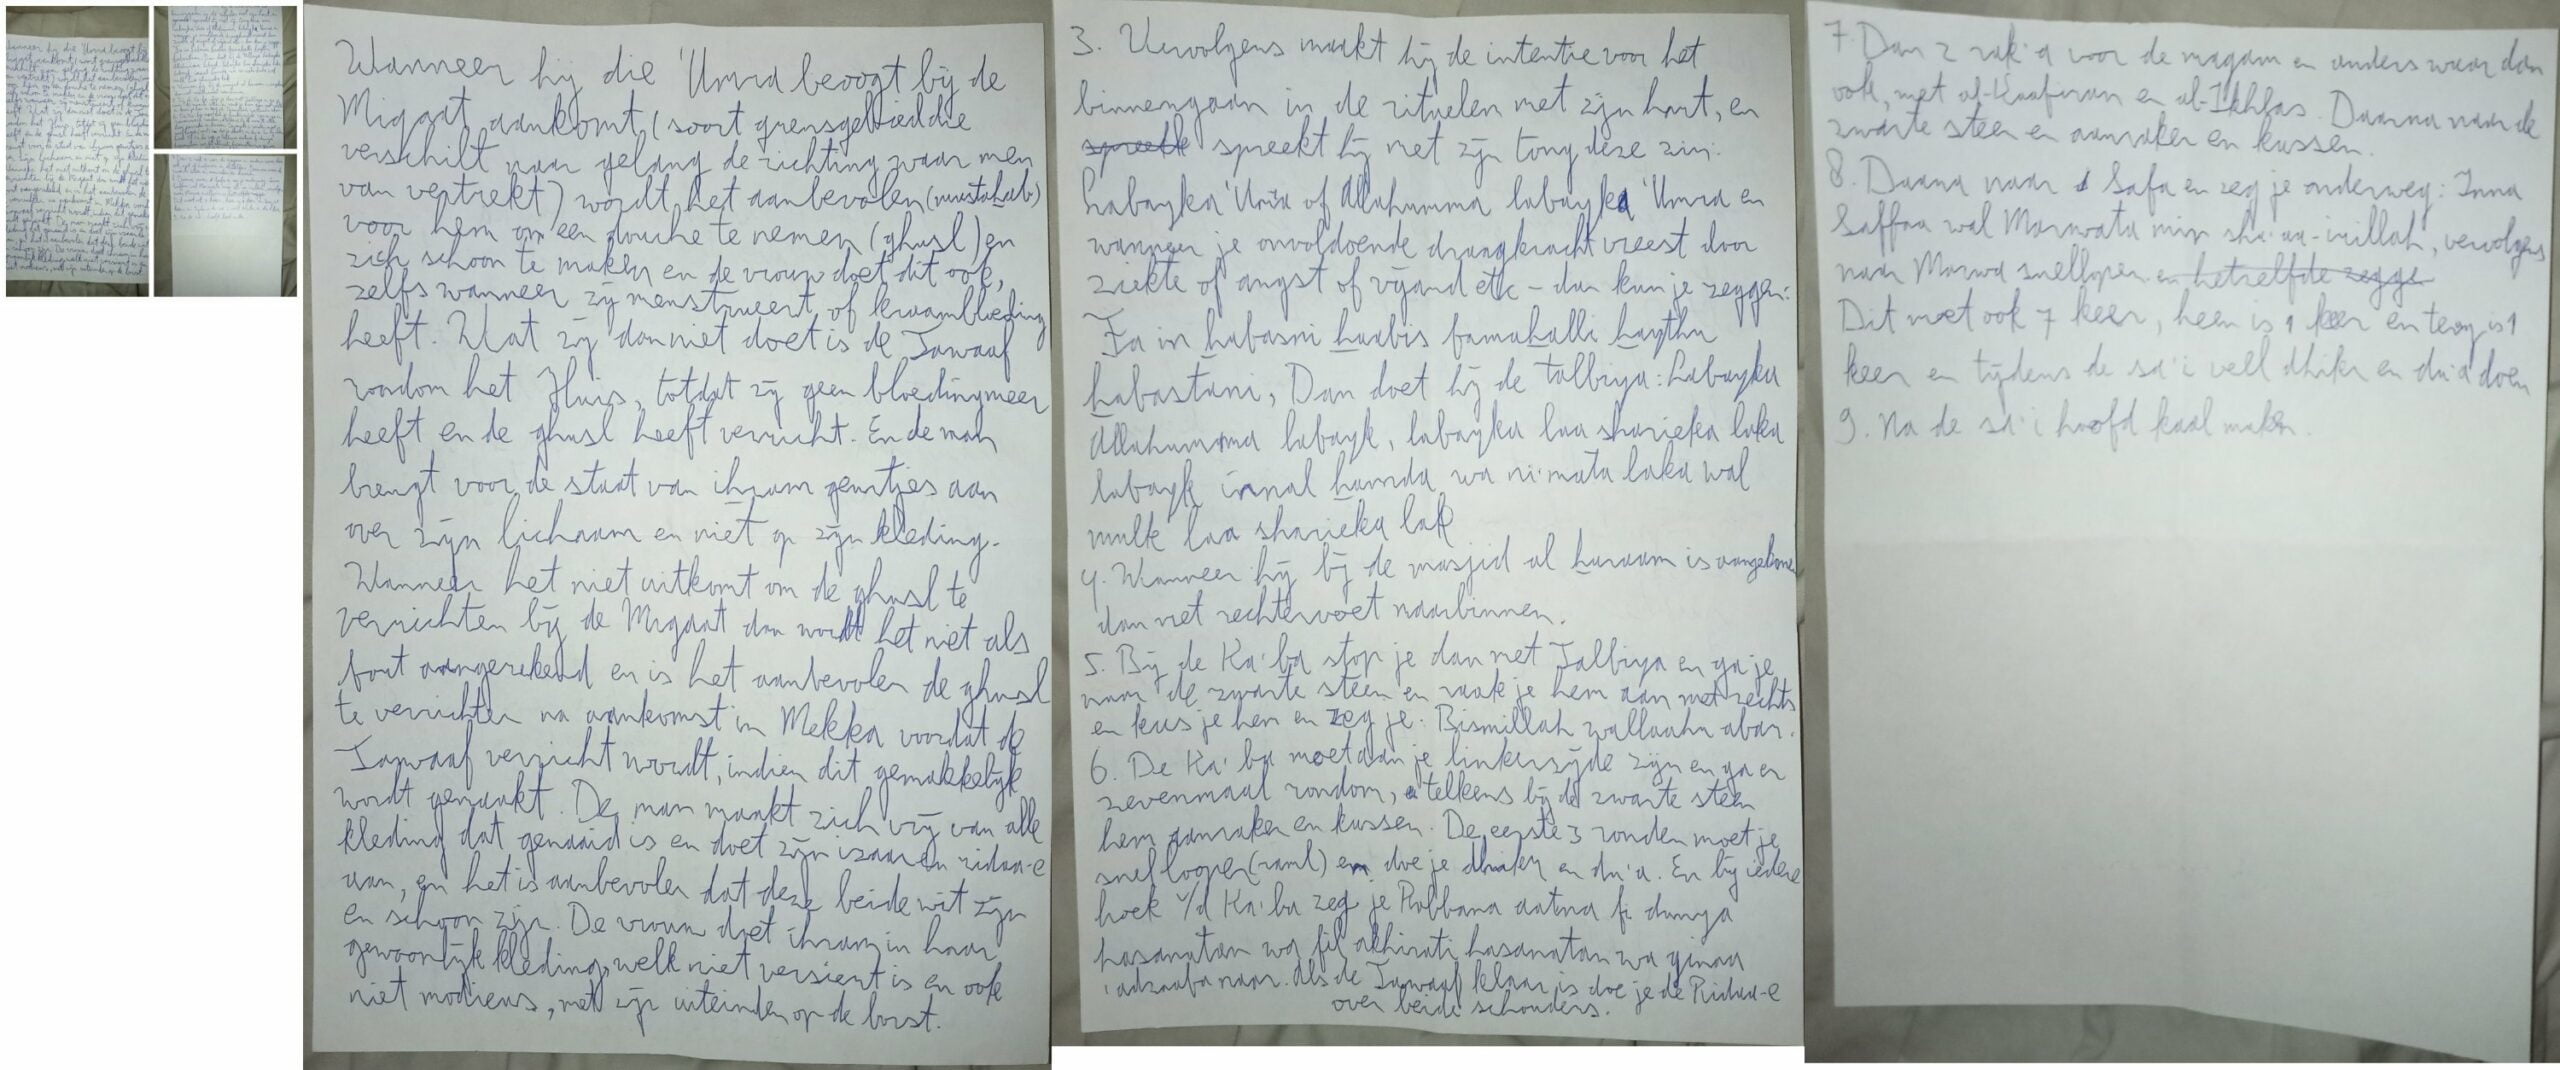 Wanneer hij die 'Umra beoogt bij de
Miqaat aankomt (soort grensgebied die
verschilt naar gelang de richting waar men
van vertrekt) wordt het aanbevolen (mustahab)
voor hem om een douche te nemen (ghusl) en
zich schoon te maken en de vrouw doet dit ook,
zelfs wanneer zij menstrueert of kraambloeding
heeft. Wat zij dan niet doet is de Tawaaf
rondom het Huis, totdat zij geen bloeding meer
heeft en de ghusl heeft verricht. En de man
brengt voor de staat van ihram geurtjes aan
over zijn lichaam en niet op zijn kleding.
Wanneer het niet uitkomt om de ghusl te
verrichten bij de Miqaat dan wordt het niet als
fout aangerekend en is het aanbevolen de ghusl
te verrichten na aankomst in Mekka voordat de
Tawaaf verricht wordt, indien dit gemakkelijk
wordt gemaakt. De man maakt zich vrij van alle
kleding dat genaaid is en doet zijn izaar en ridaa-e
aan, en het is aanbevolen dat deze beide wit zijn
en schoon zijn. De vrouw doet ihram in haar
gewoonlijk kleding, welk niet versiert is en ook
niet modieus, met zijn uiteinden op de borst.
3. Vervolgens maakt hij de intentie voor het
binnengaan in de rituelen met zijn hart, en
spreekt hij met zijn tong deze zin:
Labayka 'Umra of Allahumma labayka 'Umra en
wanneer je onvoldoende draagkracht vreest door
ziekte of angst of vijand etc - dan kun je zeggen:
Fa in habasni haabis famahalli haythu
habastani, Dan doet hij de talbiya: Labayka
Allahumma labayk, labayka laa sharieka laka
labayk innal hamda wa ni'mata laka wal
mulk laa sharieka lak
4. Wanneer hij bij de masjid al haraam is aangekomen
dan met rechtervoet naar binnen.
5. Bij de Ka'ba stop je dan met Talbiya en ga je
naar de zwarte steen en raak je hem aan met rechts
en kus je hem en zeg je: Bismillah wallaahu abar.
6. De Ka'ba moet aan je linkerzijde zijn en ga er
zevenmaal rondom, telkens bij de zwarte steen
hem aanraken en kussen. De eerste 3 ronden moet je
snel lopen (raml) en doe je dhikr en du'a. En bij iedere
hoek v/d Ka'ba zeg je Rabbana aatna fi dunya
hasanatan wa fil akhirati hasanatan wa qinaa
'adzaaba naar. Als de Tawaaf klaar is doe je de Ridaa-e
over beide schouders.
7. Dan 2 rak'a voor de maqam en anders waar dan
ook, met al-Kaafirun en al-Ikhlas. Daarna naar de
zwarte steen en aanraken en kussen.
8. Daarna naar Safa en zeg je onderweg: Inna
Saffaa wal Marwata min sha'aa-irillah, vervolgens
naar Marwa snellopen en hetzelfde zegge
Dit moet ook 7 keer, heen is 1 keer en terug is 1
keer en tijdens de sa'i veel dhikr en du'a doen
9. Na de sa'i hoofd kaal maken.